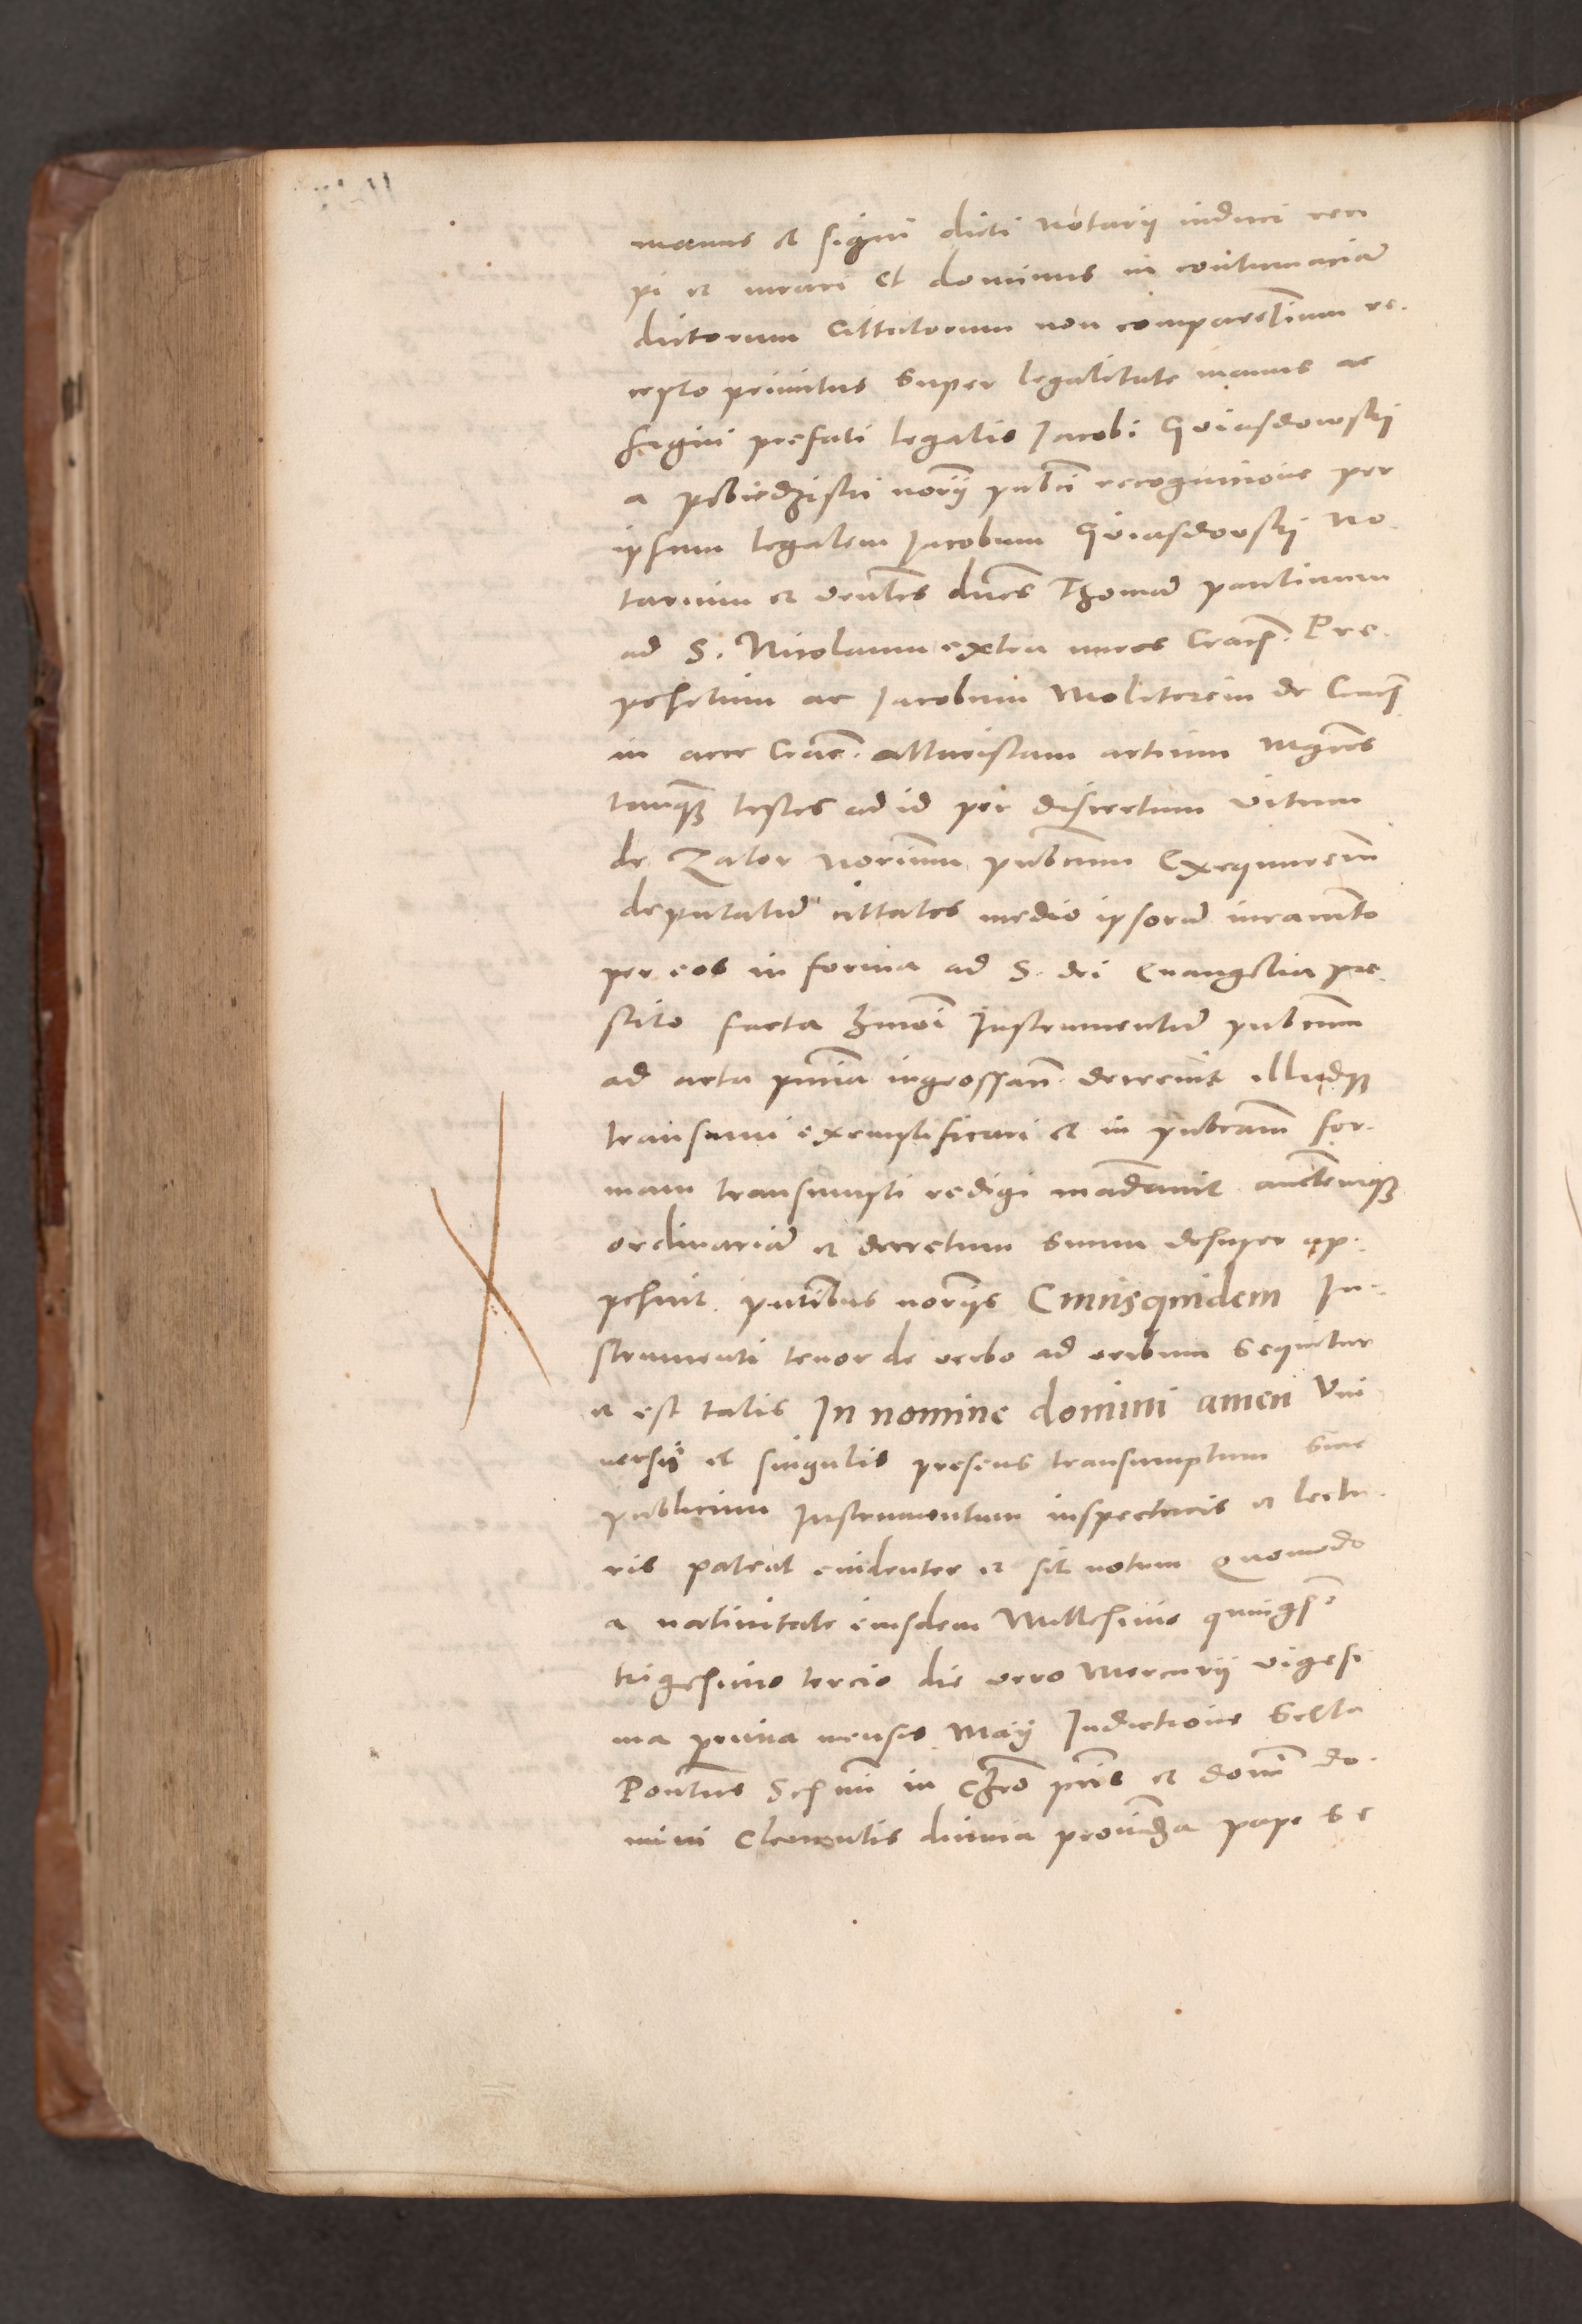 manus et signi dicti Notarii induci reci
pi et iurari Et dominus in contumaciam
dictorum cittatorum non comparentium re-
cepto primitus super legalitate manus ac
signi prefati legalis Jacobi Gviasdowskij
a pobiedziski norij publici recognicione per
ipsum legalem Jacobum Gviasdovskij no
tarium et ven̄les dn̄os Thomam paulinum
ad S. Nicolaum extra muros Crac̄. Pre-
positum ac Jacobum Moliterem de Crac̄
in arce Crac̄. altaristam artium Mgr̄os
tanq̄ testes ad id per discretum vitum
de Zator Norium pubcum Exequutorem
deputatum cittatos medio ipsorum iuramento
per eos in forma ad S. dei Euangelia pre-
stito facta hmōi Instrumentum pubcum
ad acta pn̄tia ingrossan̄. decrevit illudq̄
transumi exemplificari et in pubcam for-
mam transumpti redigi mādavit auctemq̄
ordinariam et decretum suum desuper ap-
posuit. pn̄tibus noriis Cuiusquidem In-
strumenti tenor de verbo ad verbum sequitur
et est talis In nomine domini amen Vni
versis et singulis presens transumptum siue
publicum Instrumentum inspecturis et lectu-
ris pateat euidenter et sit notum Quomodo
a nativitate eiusdem Millesimo quingmo
trigesimo tercio die vero Mercurij vigesi
ma prima mensis Maij Indictione Sexta
Pontus Scissmi in chro pris et domi do-
mini Clementis diuina prouidēa pape se